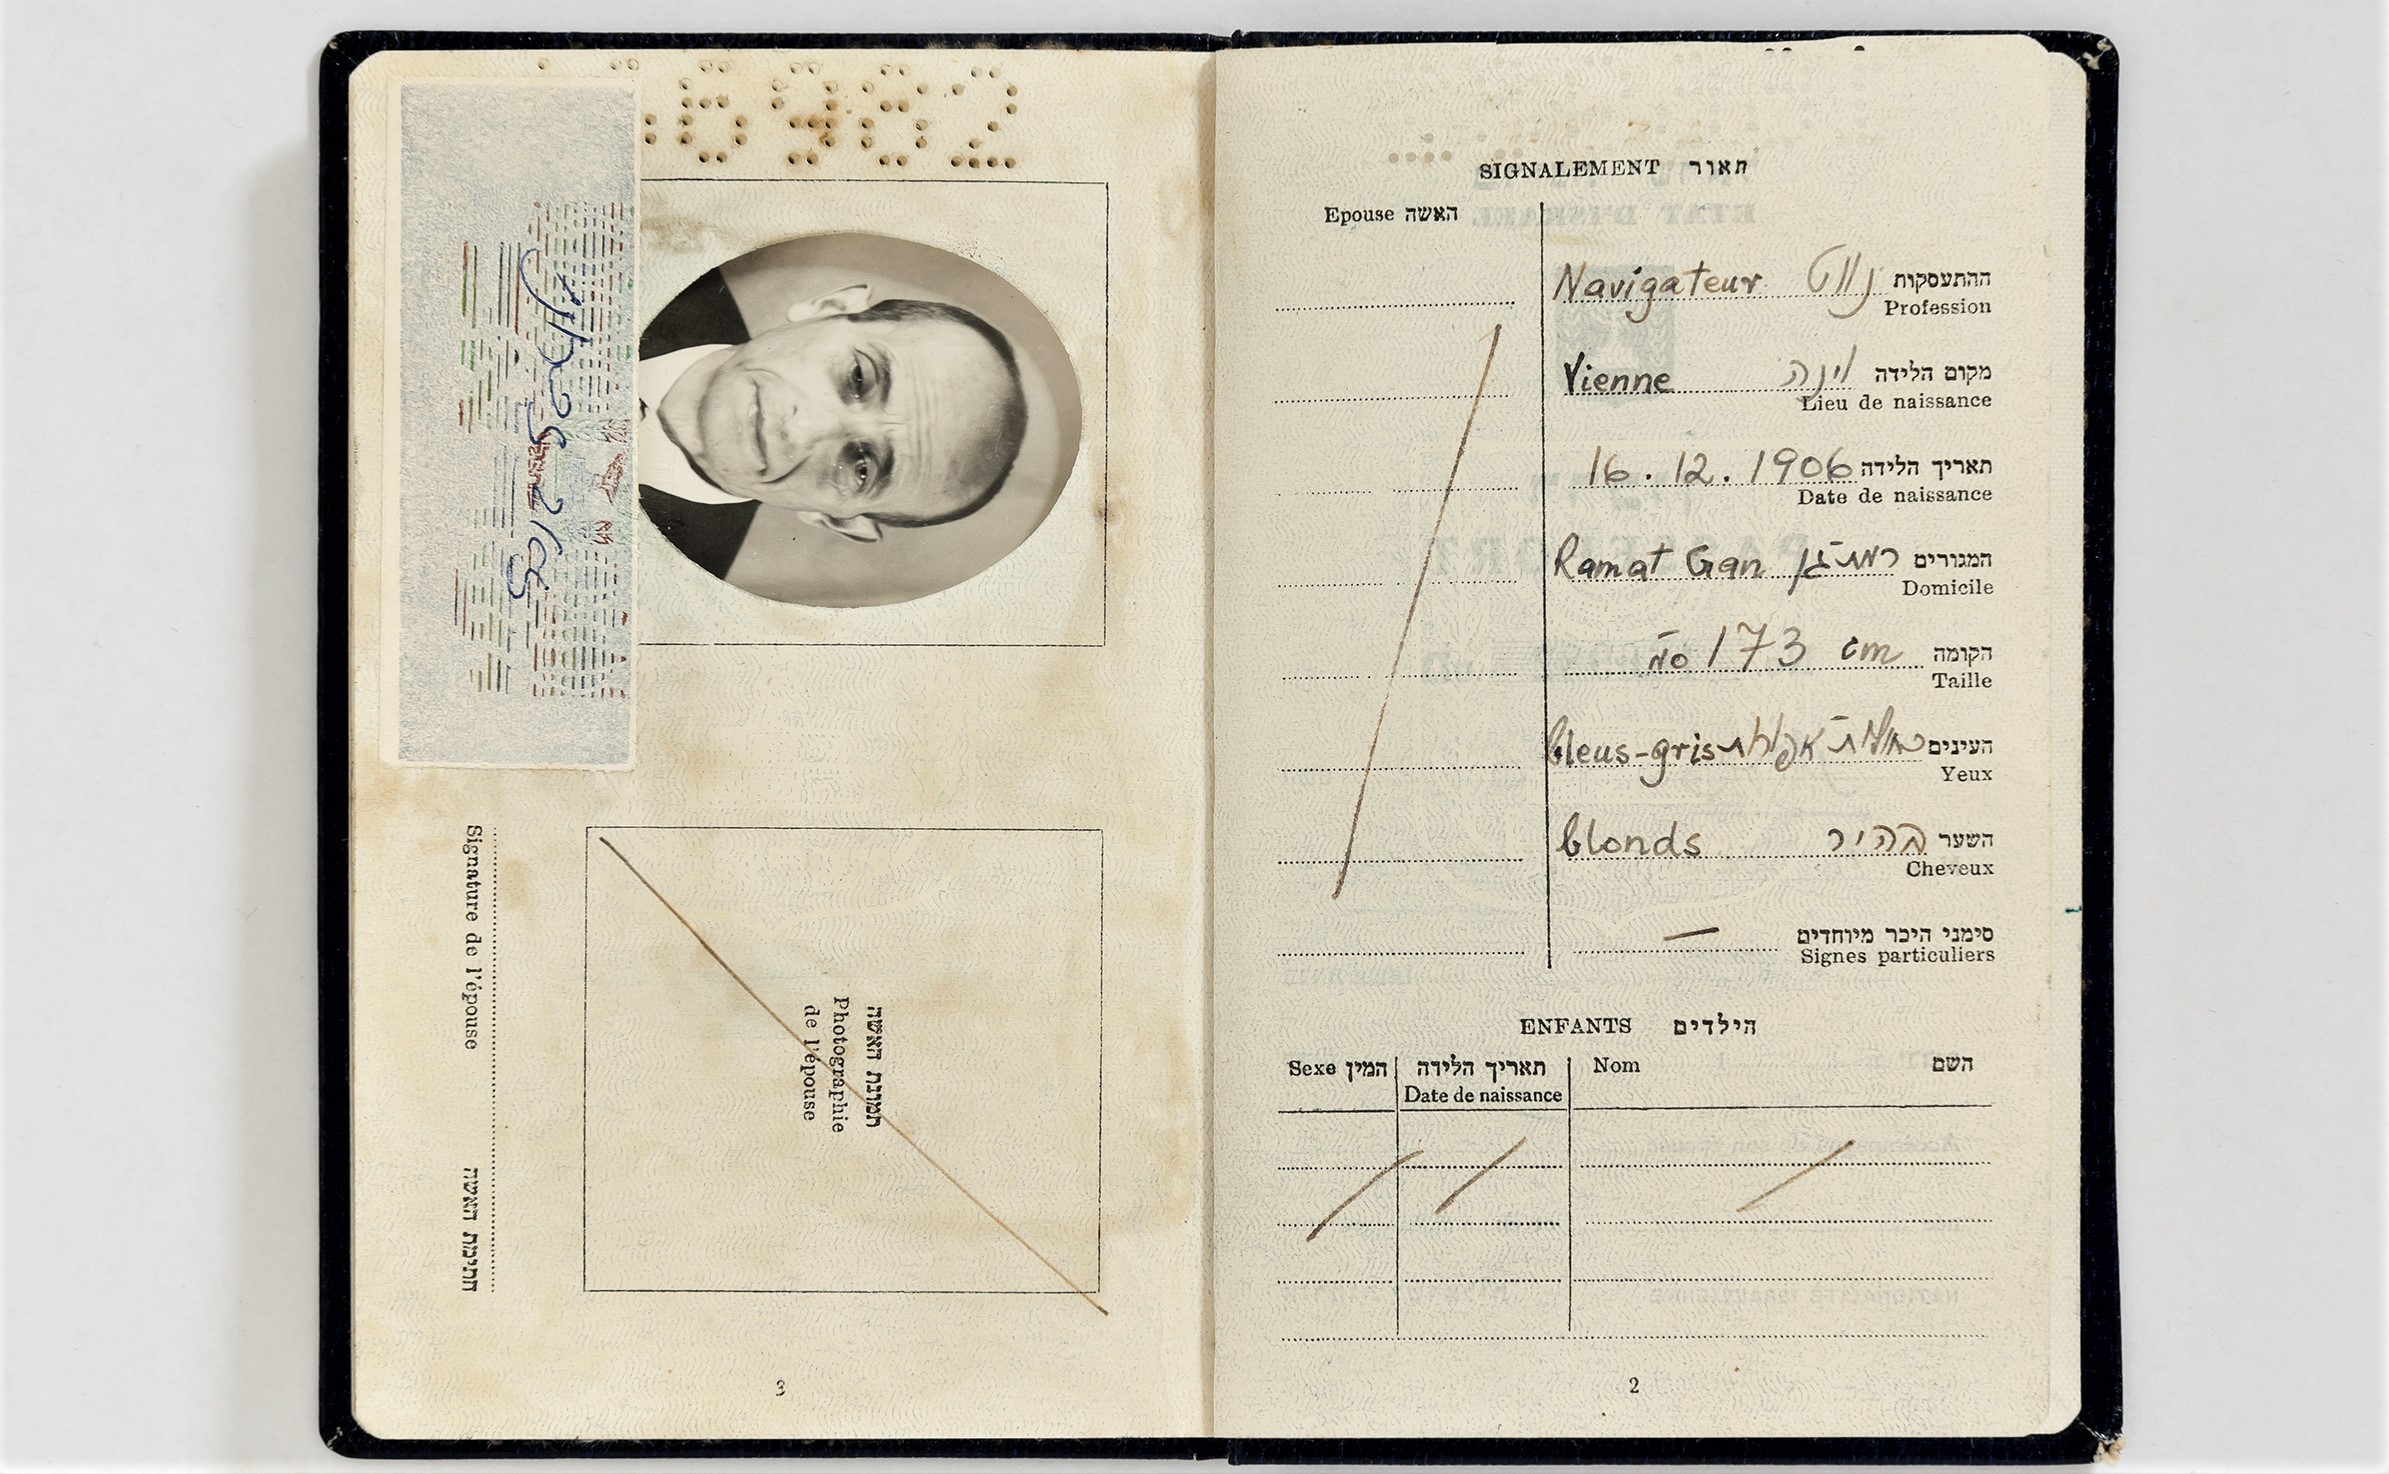 תאור SIGNALEMENT
האשה Epouse
ההתעסקות נווט Navigateur
Profession
מקום הלידה וינה Vienne
Lieu de naissance
תאריך הלידה 16.12.1906
Date de naissance
המגורים רמת-גן Ramat Gan
Domicile
הקומה 173 cm
Taille
העינים כחולות-אפורות bleus-gris
Yeux
השער בהיר blonds
Cheveux
סימני היכר מיוחדים —
Signes particuliers
הילדים ENFANTS
השם Nom תאריך הלידה המין Sexe
Date de naissance
2
6982
תמונת האשה
Photographie
de l'épouse
חתימת האשה Signature de l'épouse
3